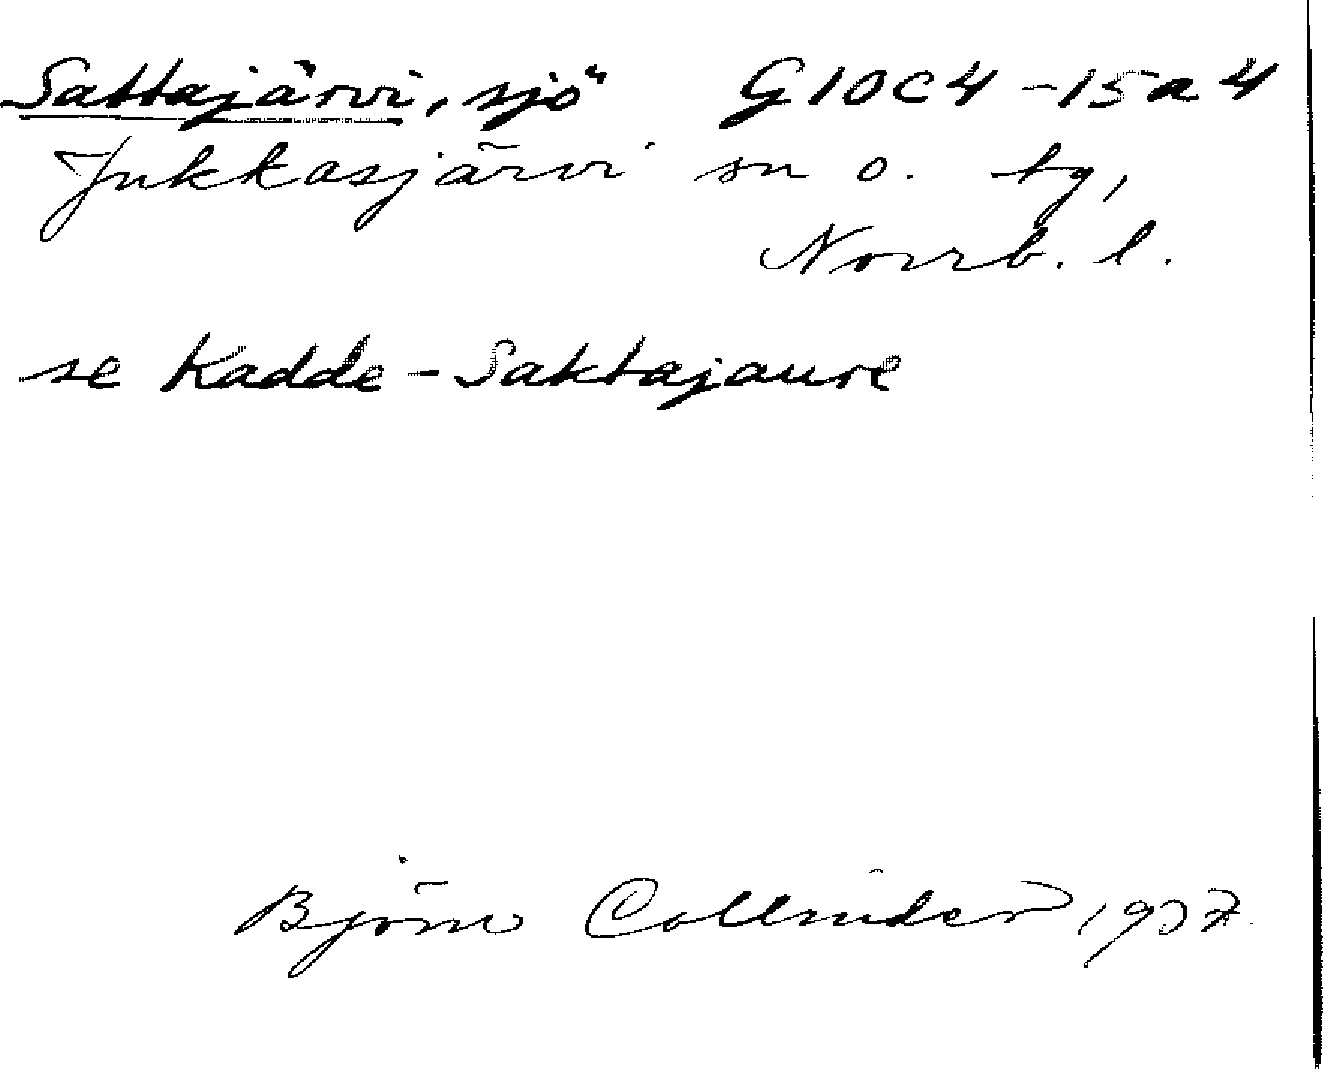 Sattajärvi, sjö G10C4-15a4
Jukkasjärvi sn o. tg,
Norrb. l.
se Kadde-Saktajaure
Björn Collinder 1937.